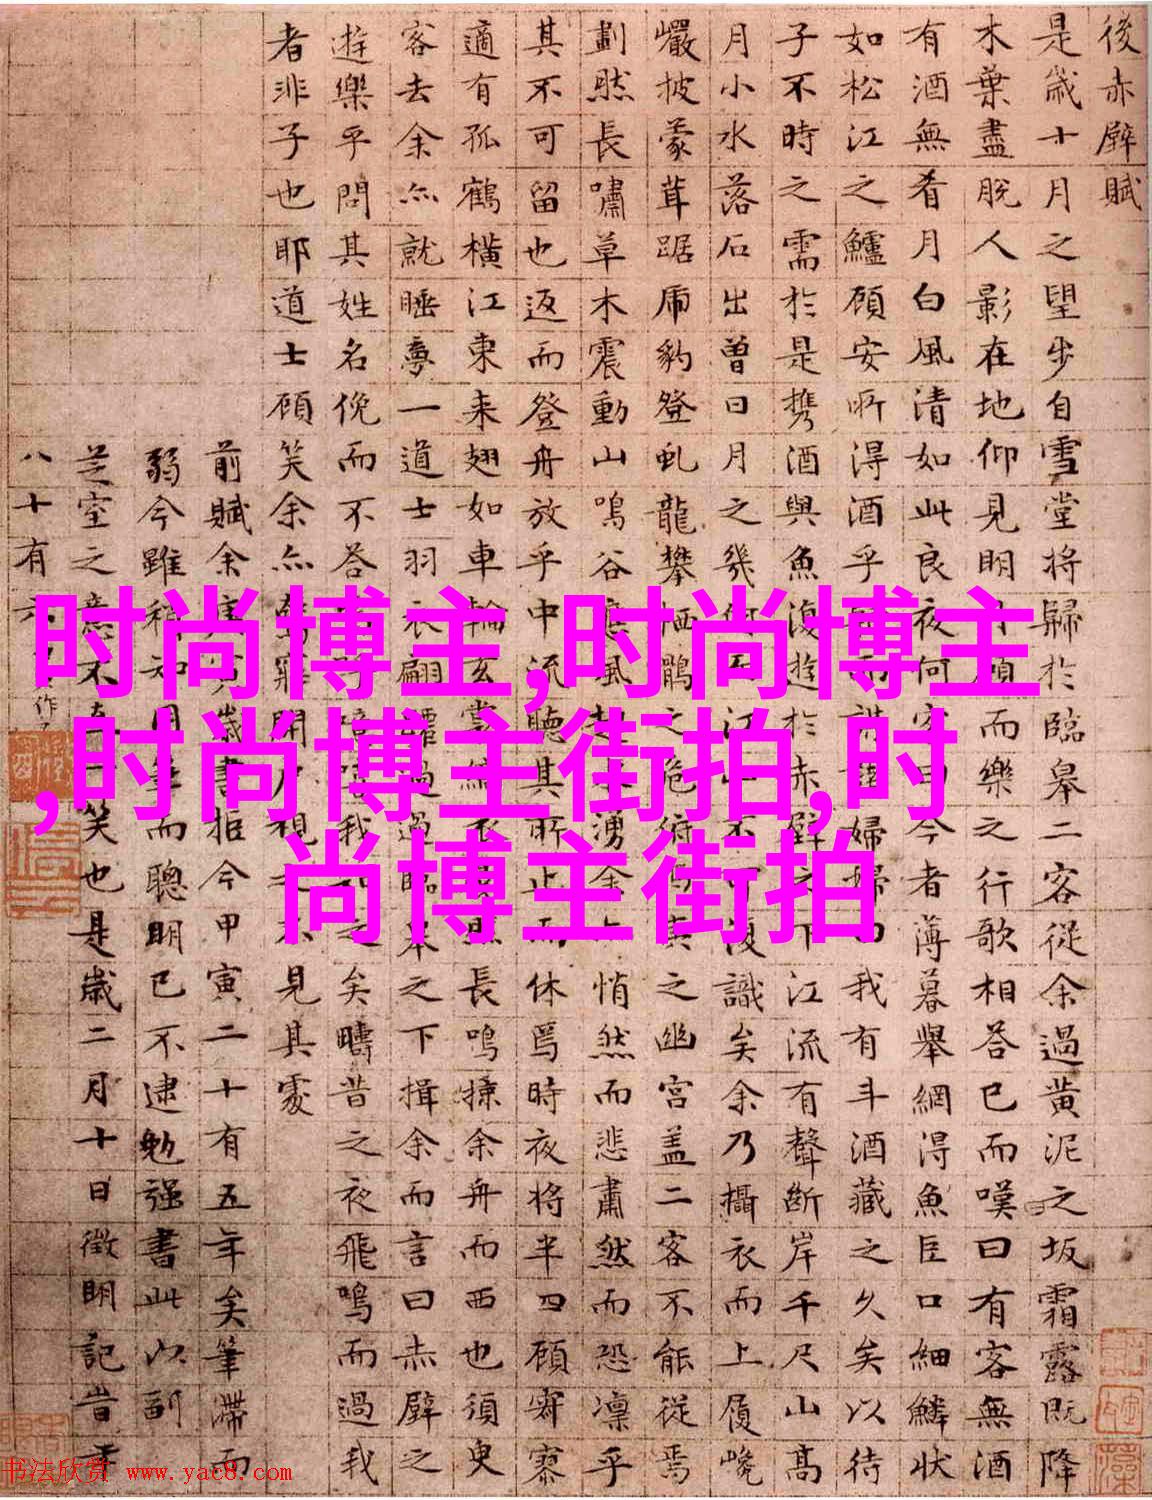 後赤壁賦
是歲十月之望步自雪堂將歸於臨皋二客從余過黄泥之坂霜露既降
木葉盡脫人影在地仰見明月顧而樂之行歌相荅已而嘆曰有客無酒
有酒無肴月白風清如此良夜何客曰今者薄暮舉網得魚巨口細鱗狀
如松江之鱸顧安所得酒乎而謀諸婦婦曰我有斗酒藏之久矣以待
子不時之需於是携酒與魚復遊於赤壁之下江流有聲斷岸千尺山高
月小水落石出曾日月之幾何而江山不可復識矣余乃攝衣而上履巉
巖披蒙茸踞虎豹登虬龍攀栖鶻之危俯馮夷之幽宮盖二客不能從焉
劃然長嘯草木震動山鳴谷應風起水湧余亦悄然而悲肅然而恐凜乎
其不可留也返而登舟放乎中流聽其所止而休焉時夜將半四顧寂寥
適有孤鶴横江東来翅如車輪玄裳縞衣戛然長鳴掠余舟而西也須臾
客去余亦就睡夢一道士羽衣翩躚過臨皋之下揖余而言曰赤壁之
遊樂乎問其姓名俛而不荅嗚呼噫嘻我知之矣疇昔之夜飛鳴而過我
者非子也耶道士顧笑余亦驚寤開户視之不見其處
前賦余庚寅歲書拒今甲寅二十有五年矣筆滯而
弱今雖稍知用筆而聰明已不逮勉强書此以副
芝室之意不直一笑也是歲二月十日徵明記旹年
八十有六
时尚博主,时尚博主
,时尚博主街拍,时
尚博主街拍
书法欣赏 www.yac8.com